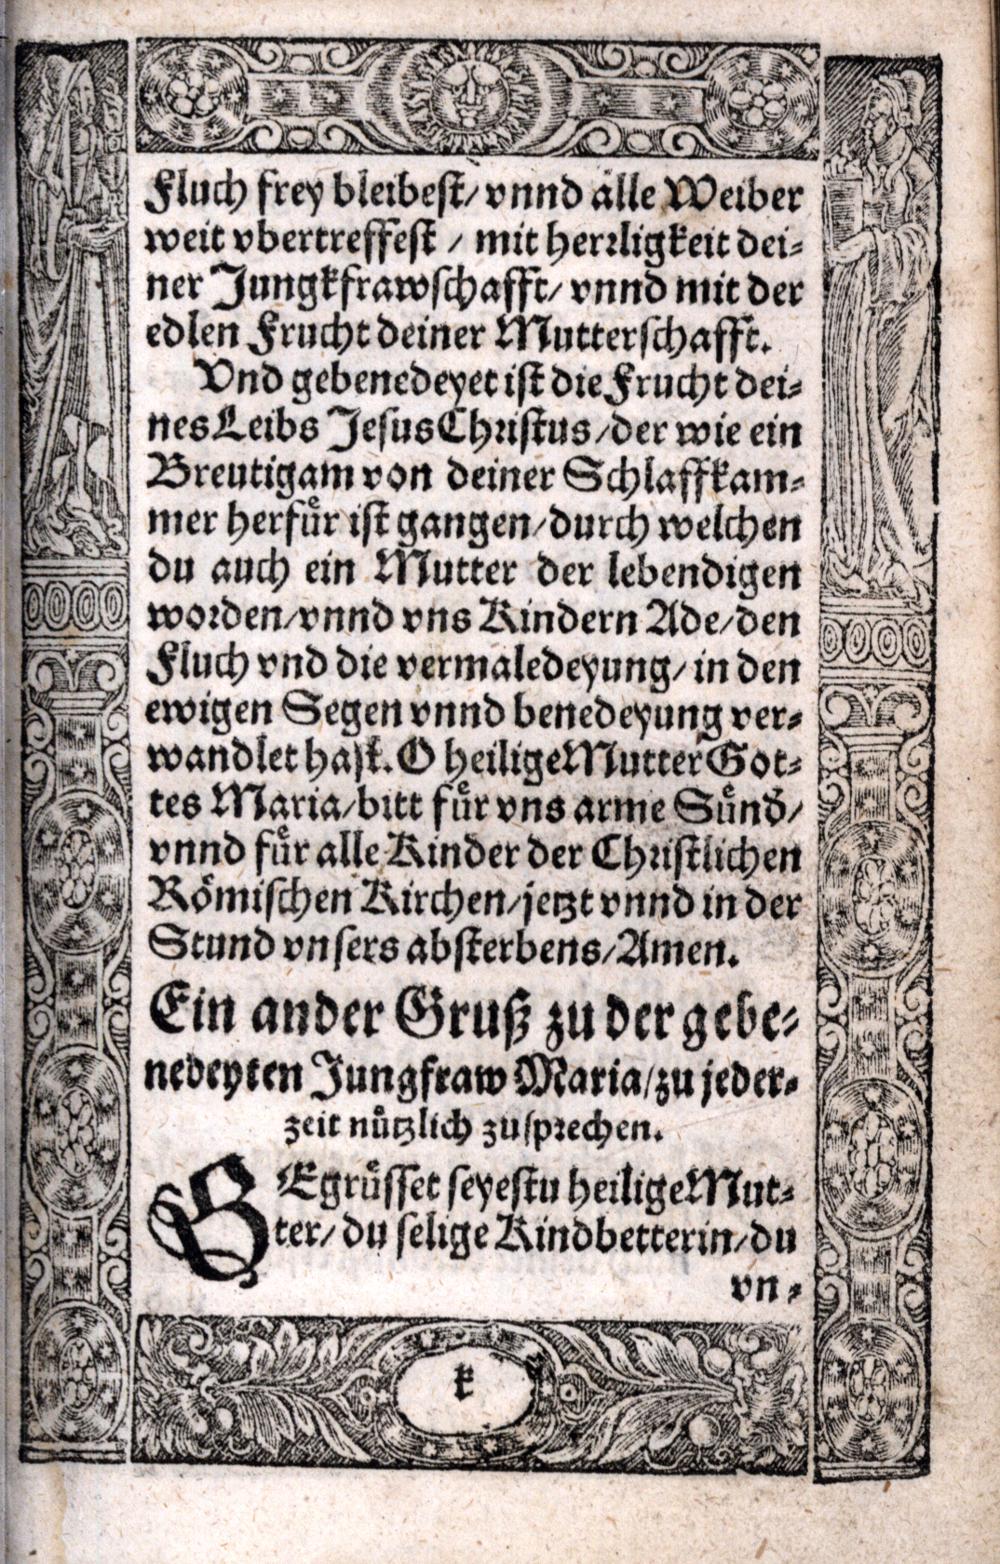 Fluch frey bleibest/ vnnd alle Weiber
weit vbertreffest / mit herrligkeit dei-
ner Jungkfrawschafft/ vnnd mit der
edlen Frucht deiner Mutterschafft.
Vnd gebenedeyet ist die Frucht dei-
nes Leibs Jesus Christus/ der wie ein
Breutigam von deiner Schlaffkam-
mer herfuͤr ist gangen/ durch welchen
du auch ein Mutter der lebendigen
worden/ vnnd vns Kindern Ade/ den
Fluch vnd die vermaledeyung/ in den
ewigen Segen vnnd benedeyung ver-
wandlet hast. O heilige Mutter Got-
tes Maria/ bitt fuͤr vns arme Suͤnd/
vnnd fuͤr alle Kinder der Christlichen
Roͤmischen Kirchen/ jetzt vnnd in der
Stund vnsers absterbens/ Amen.
Ein ander Gruß zu der gebe-
nedeyten Jungfraw Maria/ zu jeder-
zeit nuͤtzlich zusprechen.
GEgruͤsset seyestu heilige Mut-
ter/ du selige Kindbetterin/ du
vn-
k